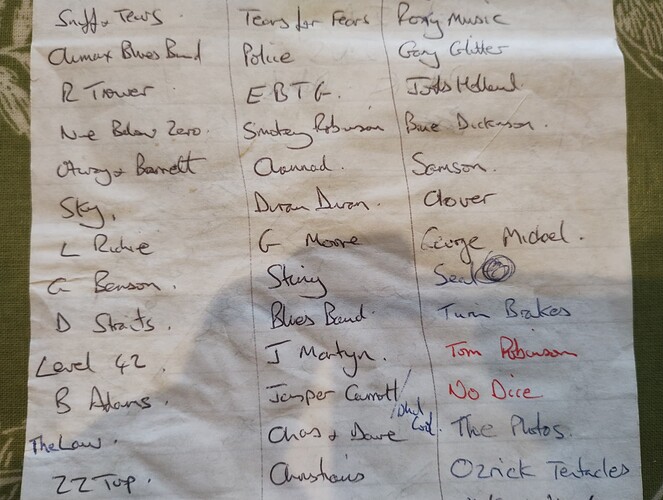 Sniff & Tears
Climax Blues Band
R Trower
Nine Below Zero.
Otway & Barrett
Sky,
L Richie
G Benson.
D Straits.
Level 42.
B Adams.
The Law.
ZZ Top.
Tears for Fears
Police
EBTG.
Smokey Robinson
Clannad.
Duran Duran.
G Moore
Sting
Blues Band.
J Martyn.
Jasper Carrott
/Phil
Chas & Dave
Christians
Roxy Music
Gary Glitter
Jools Holland
Bruce Dickinson.
Samson.
Clover
George Michael.
Seal
Turin Brakes
Tom Robinson
No Dice
The Photos.
Ozrick Tentacles